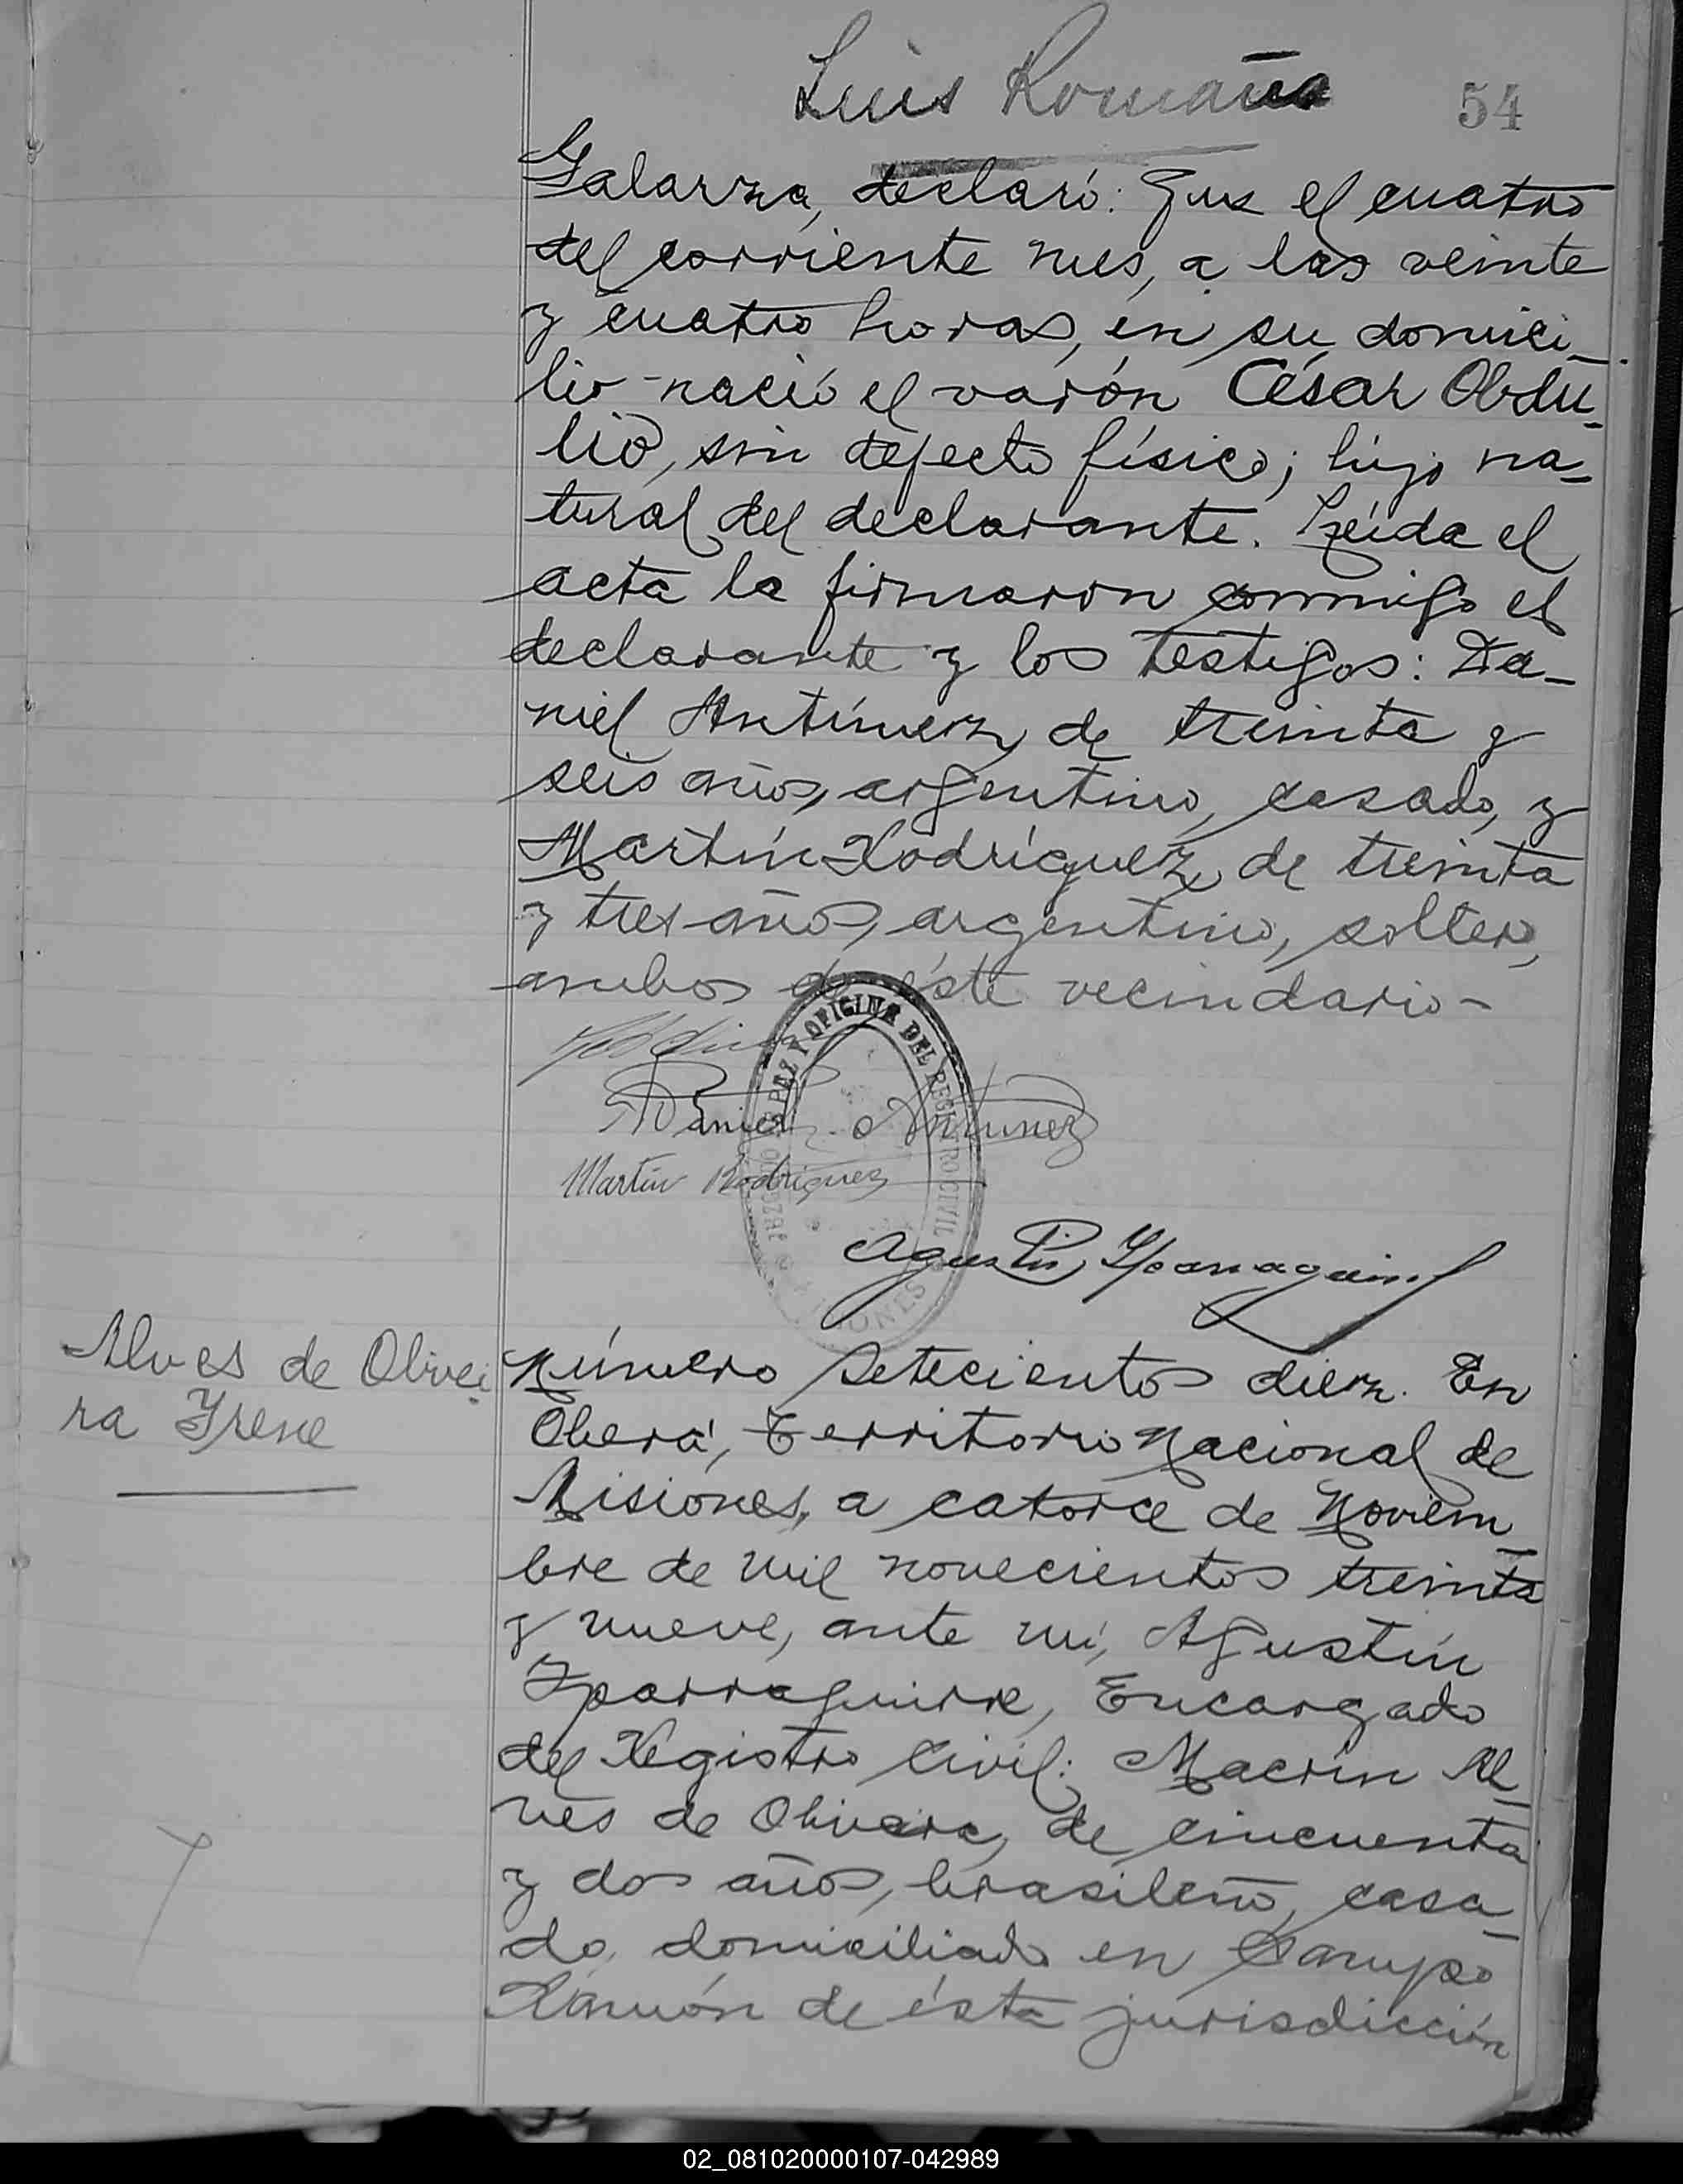 Luis Romaña
54
Galarza, declaró: Que el cuatro
del corriente mes, a las veinte
y cuatro horas, en su domici-
lio nació el varón César Obdu-
lio, sin defecto físico; hijo na-
tural del declarante. Leída el
acta la firmaron conmigo el
declarante y los testigos: Da-
niel Antúnez, de treinta y
seis años, argentino, casado, y
Martín Rodríguez, de treinta
y tres años, argentino, soltero,
ambos de éste vecindario-
PAZ Y OFICINA DEL REGISTRO CIVIL
MISIONES
Daniel Antunez
Martín Rodriguez
Agustín Yparraguirre
Alves de Olivei
ra Yrene
Número setecientos diez. En
Oberá, Territorio Nacional de
Misiones, a catorce de Noviem
bre de mil novecientos treinta
y nueve, ante mí, Agustín
Yparraguirre, Encargado
del Registro Civil: Macrin Al-
ves de Oliveira, de cincuenta
y dos años, brasileño, casa-
do, domiciliado en Campo
Ramón de ésta jurisdicción
02_081020000107-042989